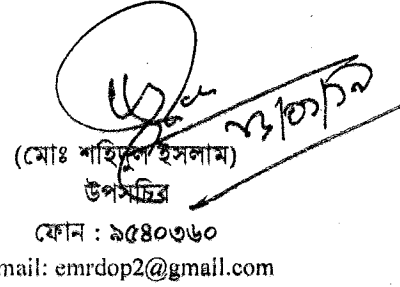 (মোঃ শহিদুল ইসলাম)
উপসচিব
ফোন : ৯৫৪০৩৬০
mail: emrdop2@gmail.com